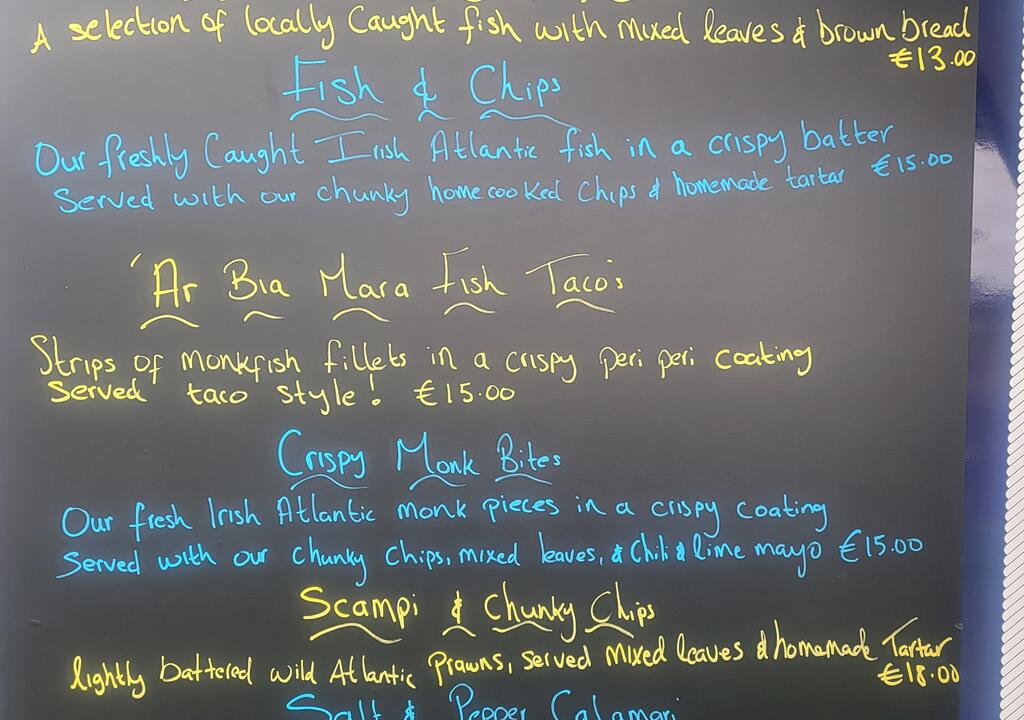 A selection of locally Caught fish with mixed leaves & brown bread
€13.00
Fish & Chips
Our freshly Caught Irish Atlantic fish in a crispy batter
Served with our chunky homecooked Chips & homemade tartar €15.00
'Ar Bia Mara Fish Taco's
Strips of monkfish fillets in a crispy peri peri coating
Served taco style! €15.00
Crispy Monk Bites
Our fresh Irish Atlantic monk pieces in a crispy coating
Served with our chunky chips, mixed leaves, & Chili & lime mayo €15.00
Scampi & Chunky Chips
lightly battered wild Atlantic prawns, served mixed leaves & homemade Tartar
€18.00
Salt & Pepper Calamari